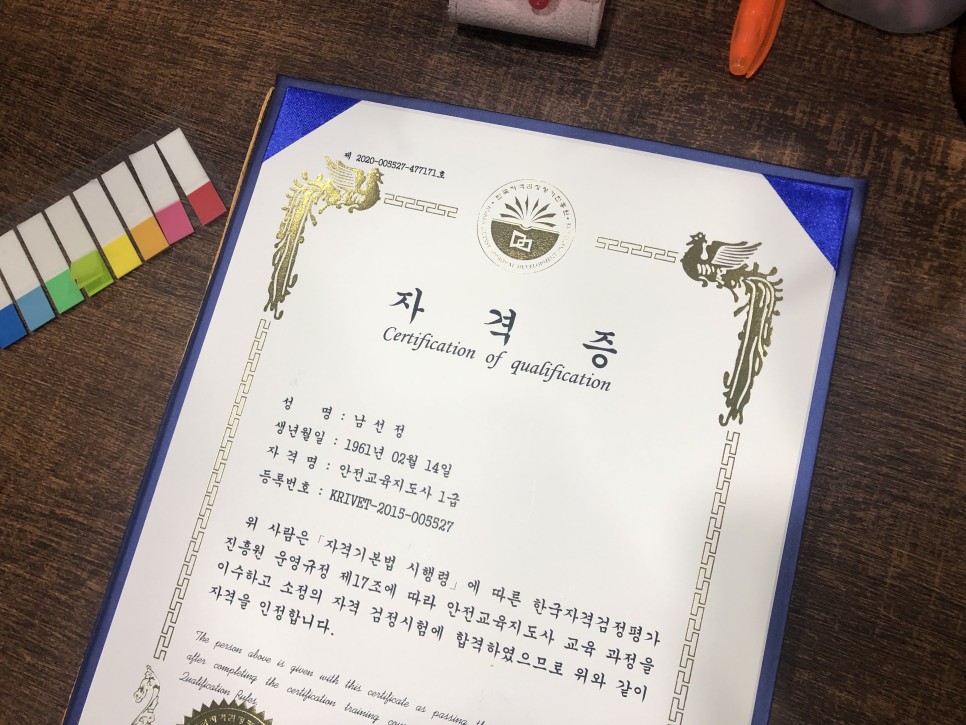 제 2020-005527-477171호
자 격 증
Certification of qualification
성 명 : 남 선 정
생년월일 : 1961년 02월 14일
자 격 명 : 안전교육지도사 1급
등록번호 : KRIVET-2015-005527
위 사람은 「자격기본법 시행령」에 따른 한국자격검정평가
진흥원 운영규정 제17조에 따라 안전교육지도사 교육 과정을
이수하고 소정의 자격 검정시험에 합격하였으므로 위와 같이
자격을 인정합니다.
The person above is given with this certificate as passing
after completing the certification training
Qualification Rules